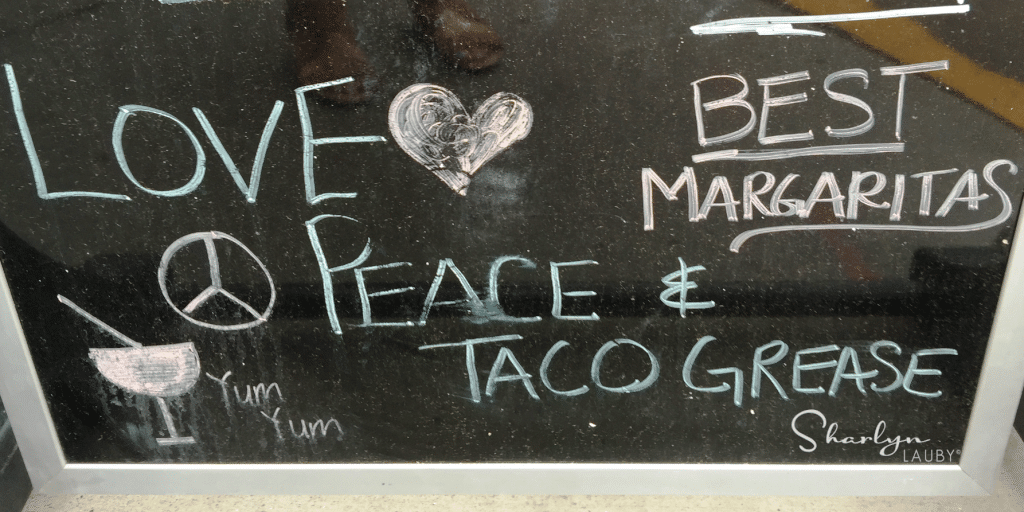 LOVE
BEST
MARGARITAS
PEACE &
TACO GREASE
Yum
Yum
Sharlyn
LAUBY®